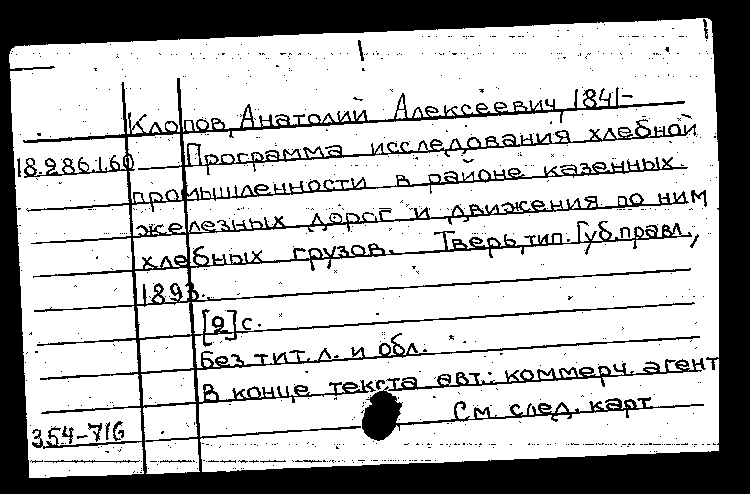 Клопов, Анатолий Алексеевич, 1841-
18.286.1.60 Программа исследования хлебной
промышленности в районе казенных
железных дорог и движения по ним
хлебных грузов. Тверь, тип. Губ. правл.,
1893.
[2] с.
Без тит. л. и обл.
В конце текста авт.: коммерч. агент
См. след. карт
354-716